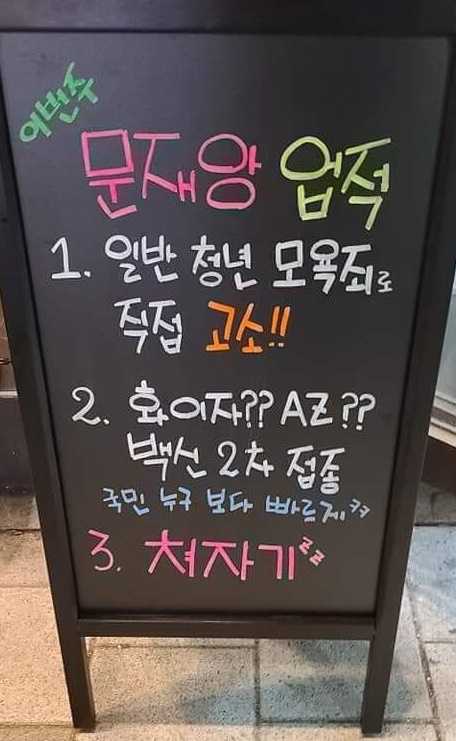 이번주
문재앙 업적
1. 일반 청년 모욕죄로
직접 고소!!
2. 화이자?? AZ??
백신 2차 접종
국민 누구 보다 빠르게 ㅋㅋ
3. 쳐자기 ㄹㄹ